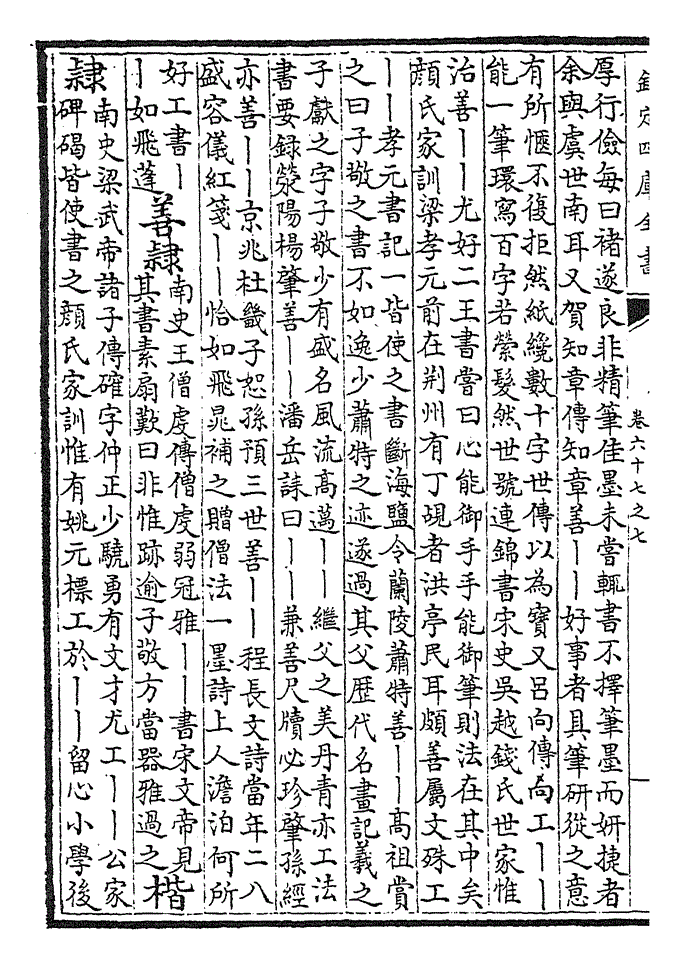 欽定四庫全書
卷六十七之七
厚行儉每曰褚遂良非精筆佳墨未嘗輒書不擇筆墨而妍捷者
余與虞世南耳又賀知章傳知章善丨丨好事者具筆研從之意
有所愜不復拒然紙纔數十字世傳以為寶又呂向傳向工丨丨
能一筆環寫百字若縈髮然世號連錦書宋史吳越錢氏世家惟
治善丨丨尤好二王書嘗曰心能御手手能御筆則法在其中矣
顔氏家訓梁孝元前在荆州有丁覘者洪亭民耳頗善屬文殊工
丨丨孝元書記一皆使之書斷海鹽令蘭陵蕭特善丨丨高祖賞
之曰子敬之書不如逸少蕭特之迹遂過其父歴代名畫記羲之
子獻之字子敬少有盛名風流高邁丨丨繼父之美丹青亦工法
書要録滎陽楊肇善丨丨潘岳誄曰丨丨兼善尺牘必珍肇孫經
亦善丨丨京兆杜畿子恕孫預三世善丨丨程長文詩當年二八
盛容儀紅箋丨丨恰如飛晁補之贈僧法一墨詩上人澹泊何所
好工書丨
丨如飛蓬
善隸
南史王僧虔傳僧虔弱冠雅丨丨書宋文帝見
其書素扇歎曰非惟跡逾子敬方當器雅過之
楷
隸
南史梁武帝諸子傳確字仲正少驍勇有文才尤工丨丨公家
碑碣皆使書之顔氏家訓惟有姚元標工於丨丨留心小學後